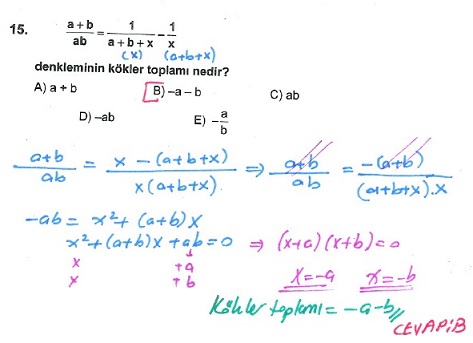 15. (a+b)/ab = 1/(a+b+x) - 1/x
(x) (a+b+x)
denkleminin kökler toplamı nedir?
A) a + b B) –a – b C) ab
D) –ab E) -a/b
(a+b)/ab = (x - (a+b+x))/(x(a+b+x)) ⇒ (a+b)/ab = -(a+b)/((a+b+x).x)
-ab = x² + (a+b)x
x² + (a+b)x + ab = 0 ⇒ (x+a)(x+b) = 0
x +a x = -a x = -b
x +b
Kökler toplamı = -a-b //
CEVAP: B